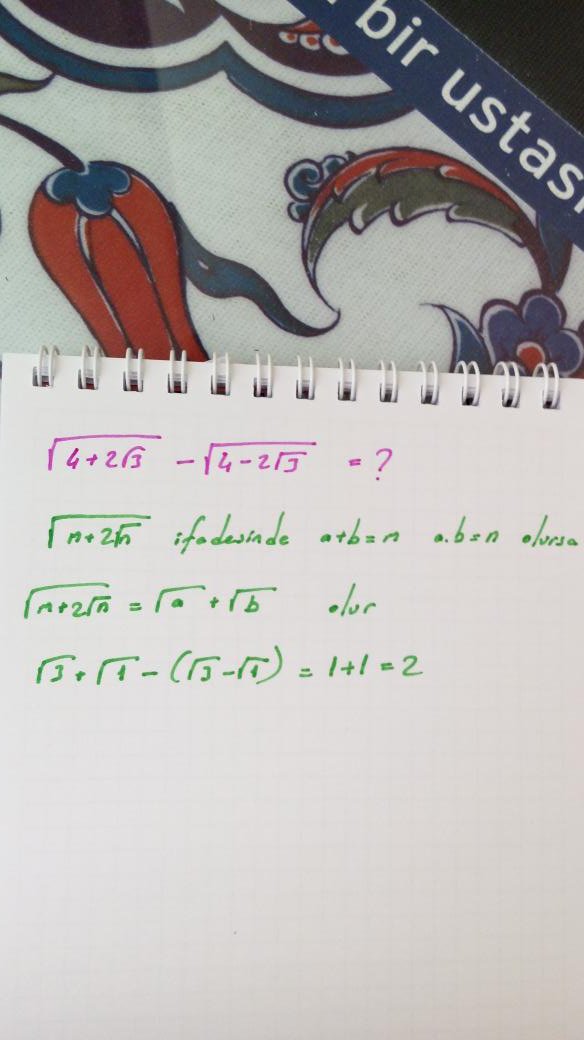 bir ustası
√(4+2√3) - √(4-2√3) = ?
√(m+2√n) ifadesinde a+b=m a.b=n olursa
√(m+2√n) = √a + √b olur
√3 + √1 - (√3-√1) = 1+1=2